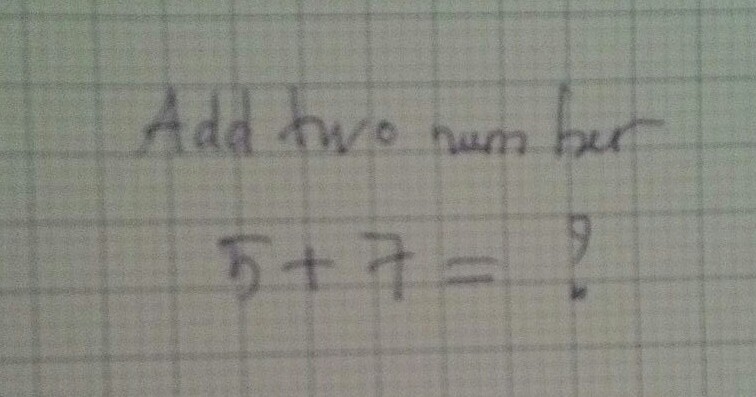 Add two number
5 + 7 = ?